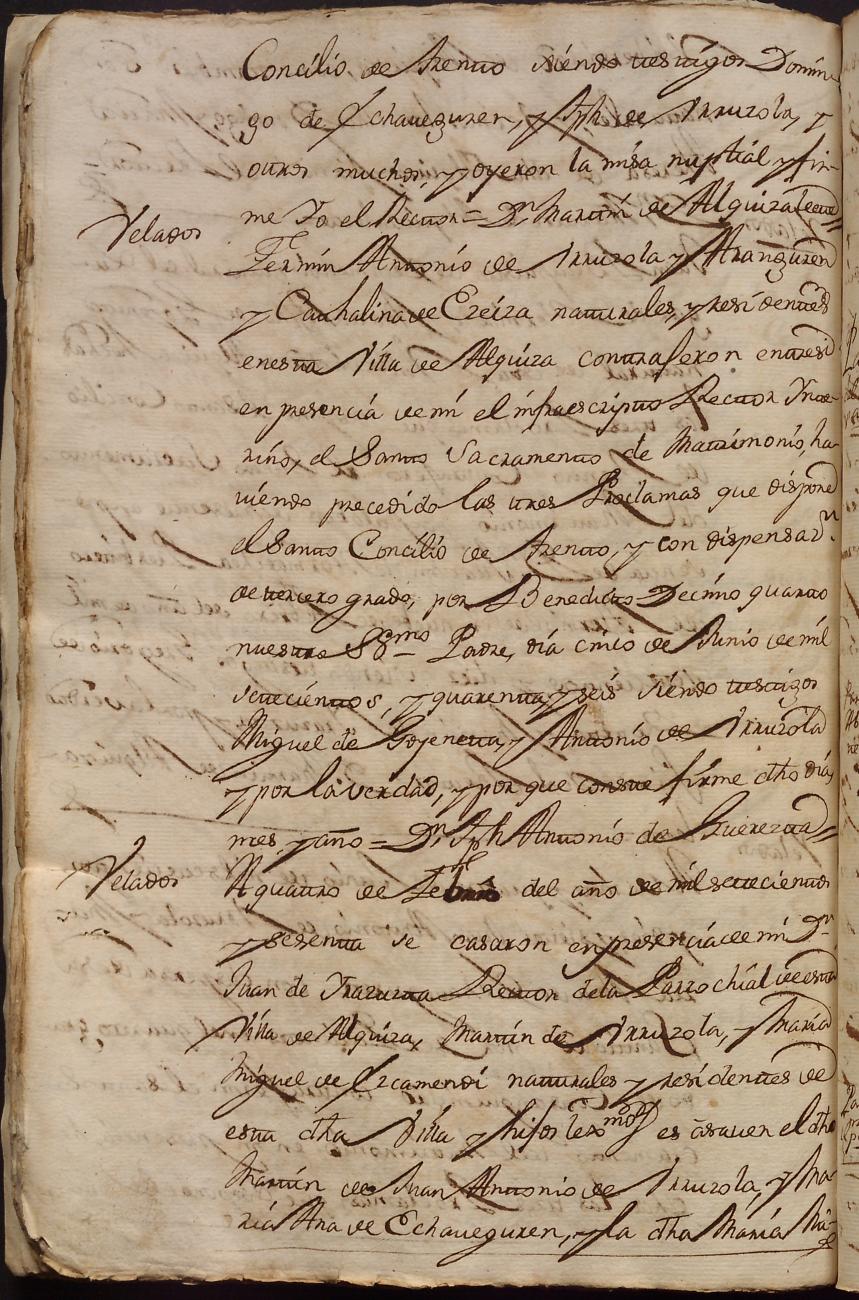 Concilio de Trento siendo testigos Domin-
go de Echaveguren, y Jph de Irruzola, y
otros muchos, y oyeron la misa nuptial y fir-
me Yo el Rector = Dn. Martin de Alquizalete =
Velados
Fermin Antonio de Irruzola y Aranguren
y Cathalina de Ezeiza naturales, y residentes
en esta Villa de Alquiza contrajeron entre si
en presencia de mi el infraescripto Rector Inte-
rino, el Santo Sacramento de Matrimonio, ha-
viendo precedido las tres Proclamas que dispone
el Santo Concilio de Trento, y con dispensasn.
de tercero grado, por Benedicto Decimo quarto
nuestro SSmo Padre, dia cinco de Junio de mil
setecientos, y quarenta y seis siendo testigos
Miguel de Goyeneta, y Antonio de Irruzola
y por la verdad, y por que conste firme dtho dia,
mes, y año = Dn. Jph Antonio de Guerezta =
Velados
A quatro de Febro del año de mil setecientos
y sesenta se casaron en presencia de mi Dn.
Juan de Irazusta Rector de la Parrochial de esta
Villa de Alquiza, Martin de Irruzola, y Maria
Miguel de Ezcamendi naturales y residentes de
esta dtha Villa y hijos lexmos es a saver el dtho
Martin de Juan Antonio de Irruzola, y Ma-
ria Ana de Echaveguren, y la dtha Maria Mi-